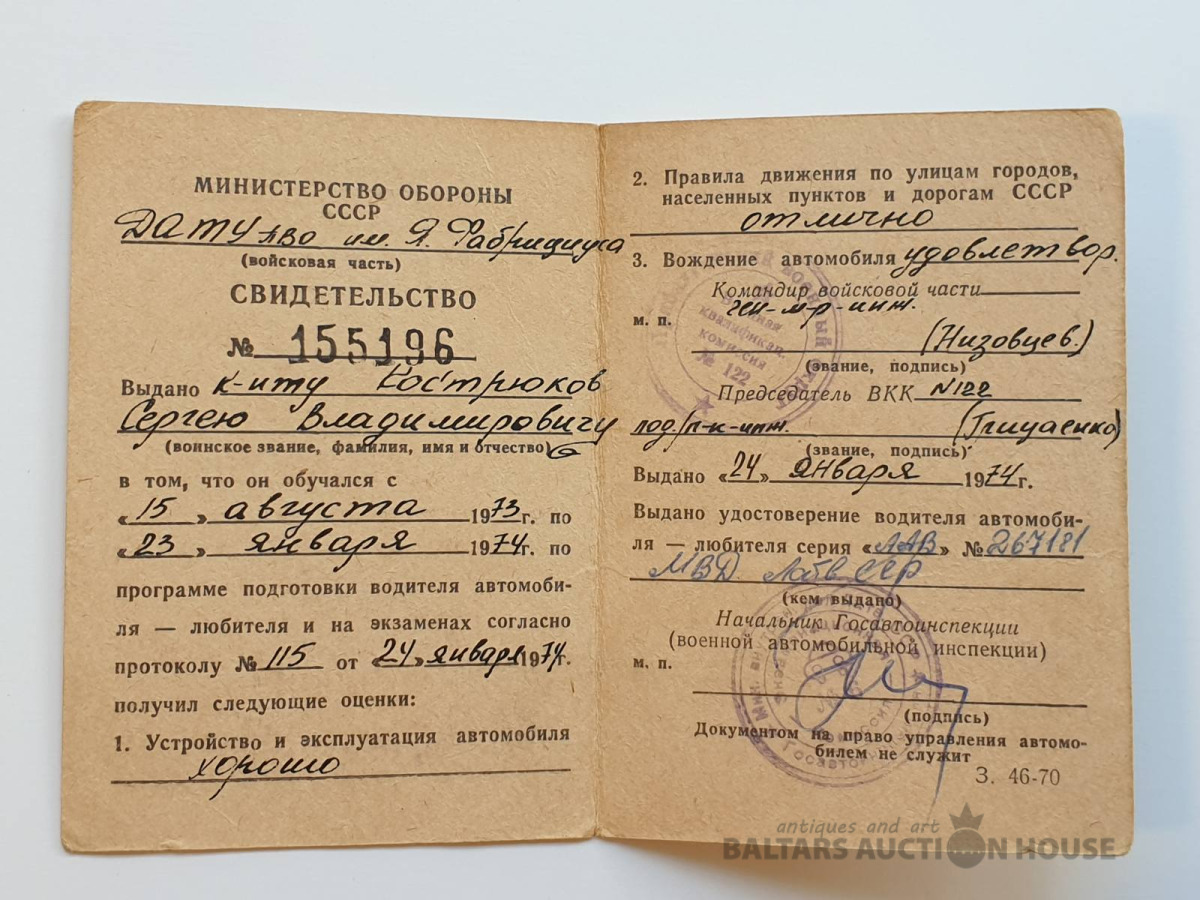 МИНИСТЕРСТВО ОБОРОНЫ
СССР
ДАТУ ПВО им. Я. Фабрициуса
(войсковая часть)
СВИДЕТЕЛЬСТВО
№ 155196
Выдано к-нту Кострюков
Сергею Владимировичу
(воинское звание, фамилия, имя и отчество)
в том, что он обучался с
«15» августа 1973г. по
«23» января 1974г. по
программе подготовки водителя автомоби-
ля — любителя и на экзаменах согласно
протоколу № 115 от «24» января 1974г.
получил следующие оценки:
1. Устройство и эксплуатация автомобиля
хорошо
2. Правила движения по улицам городов,
населенных пунктов и дорогам СССР
отлично
3. Вождение автомобиля удовлетвор.
Командир войсковой части
ген-м-р-инж.
м. п.
(Низовцев.)
(звание, подпись)
Председатель ВКК №122
под/п-к-инж. (Грицаенко)
(звание, подпись)
Выдано «24» января 1974г.
Выдано удостоверение водителя автомоби-
ля — любителя серия «ЛАВ» № 267181
МВД Латв ССР
(кем выдано)
Начальник Госавтоинспекции
(военной автомобильной инспекции)
м. п.
(подпись)
Документом на право управления автомо-
билем не служит
З. 46-70
квалификац.
комиссия
№ 122
antiques and art
BALTARS AUCTION HOUSE